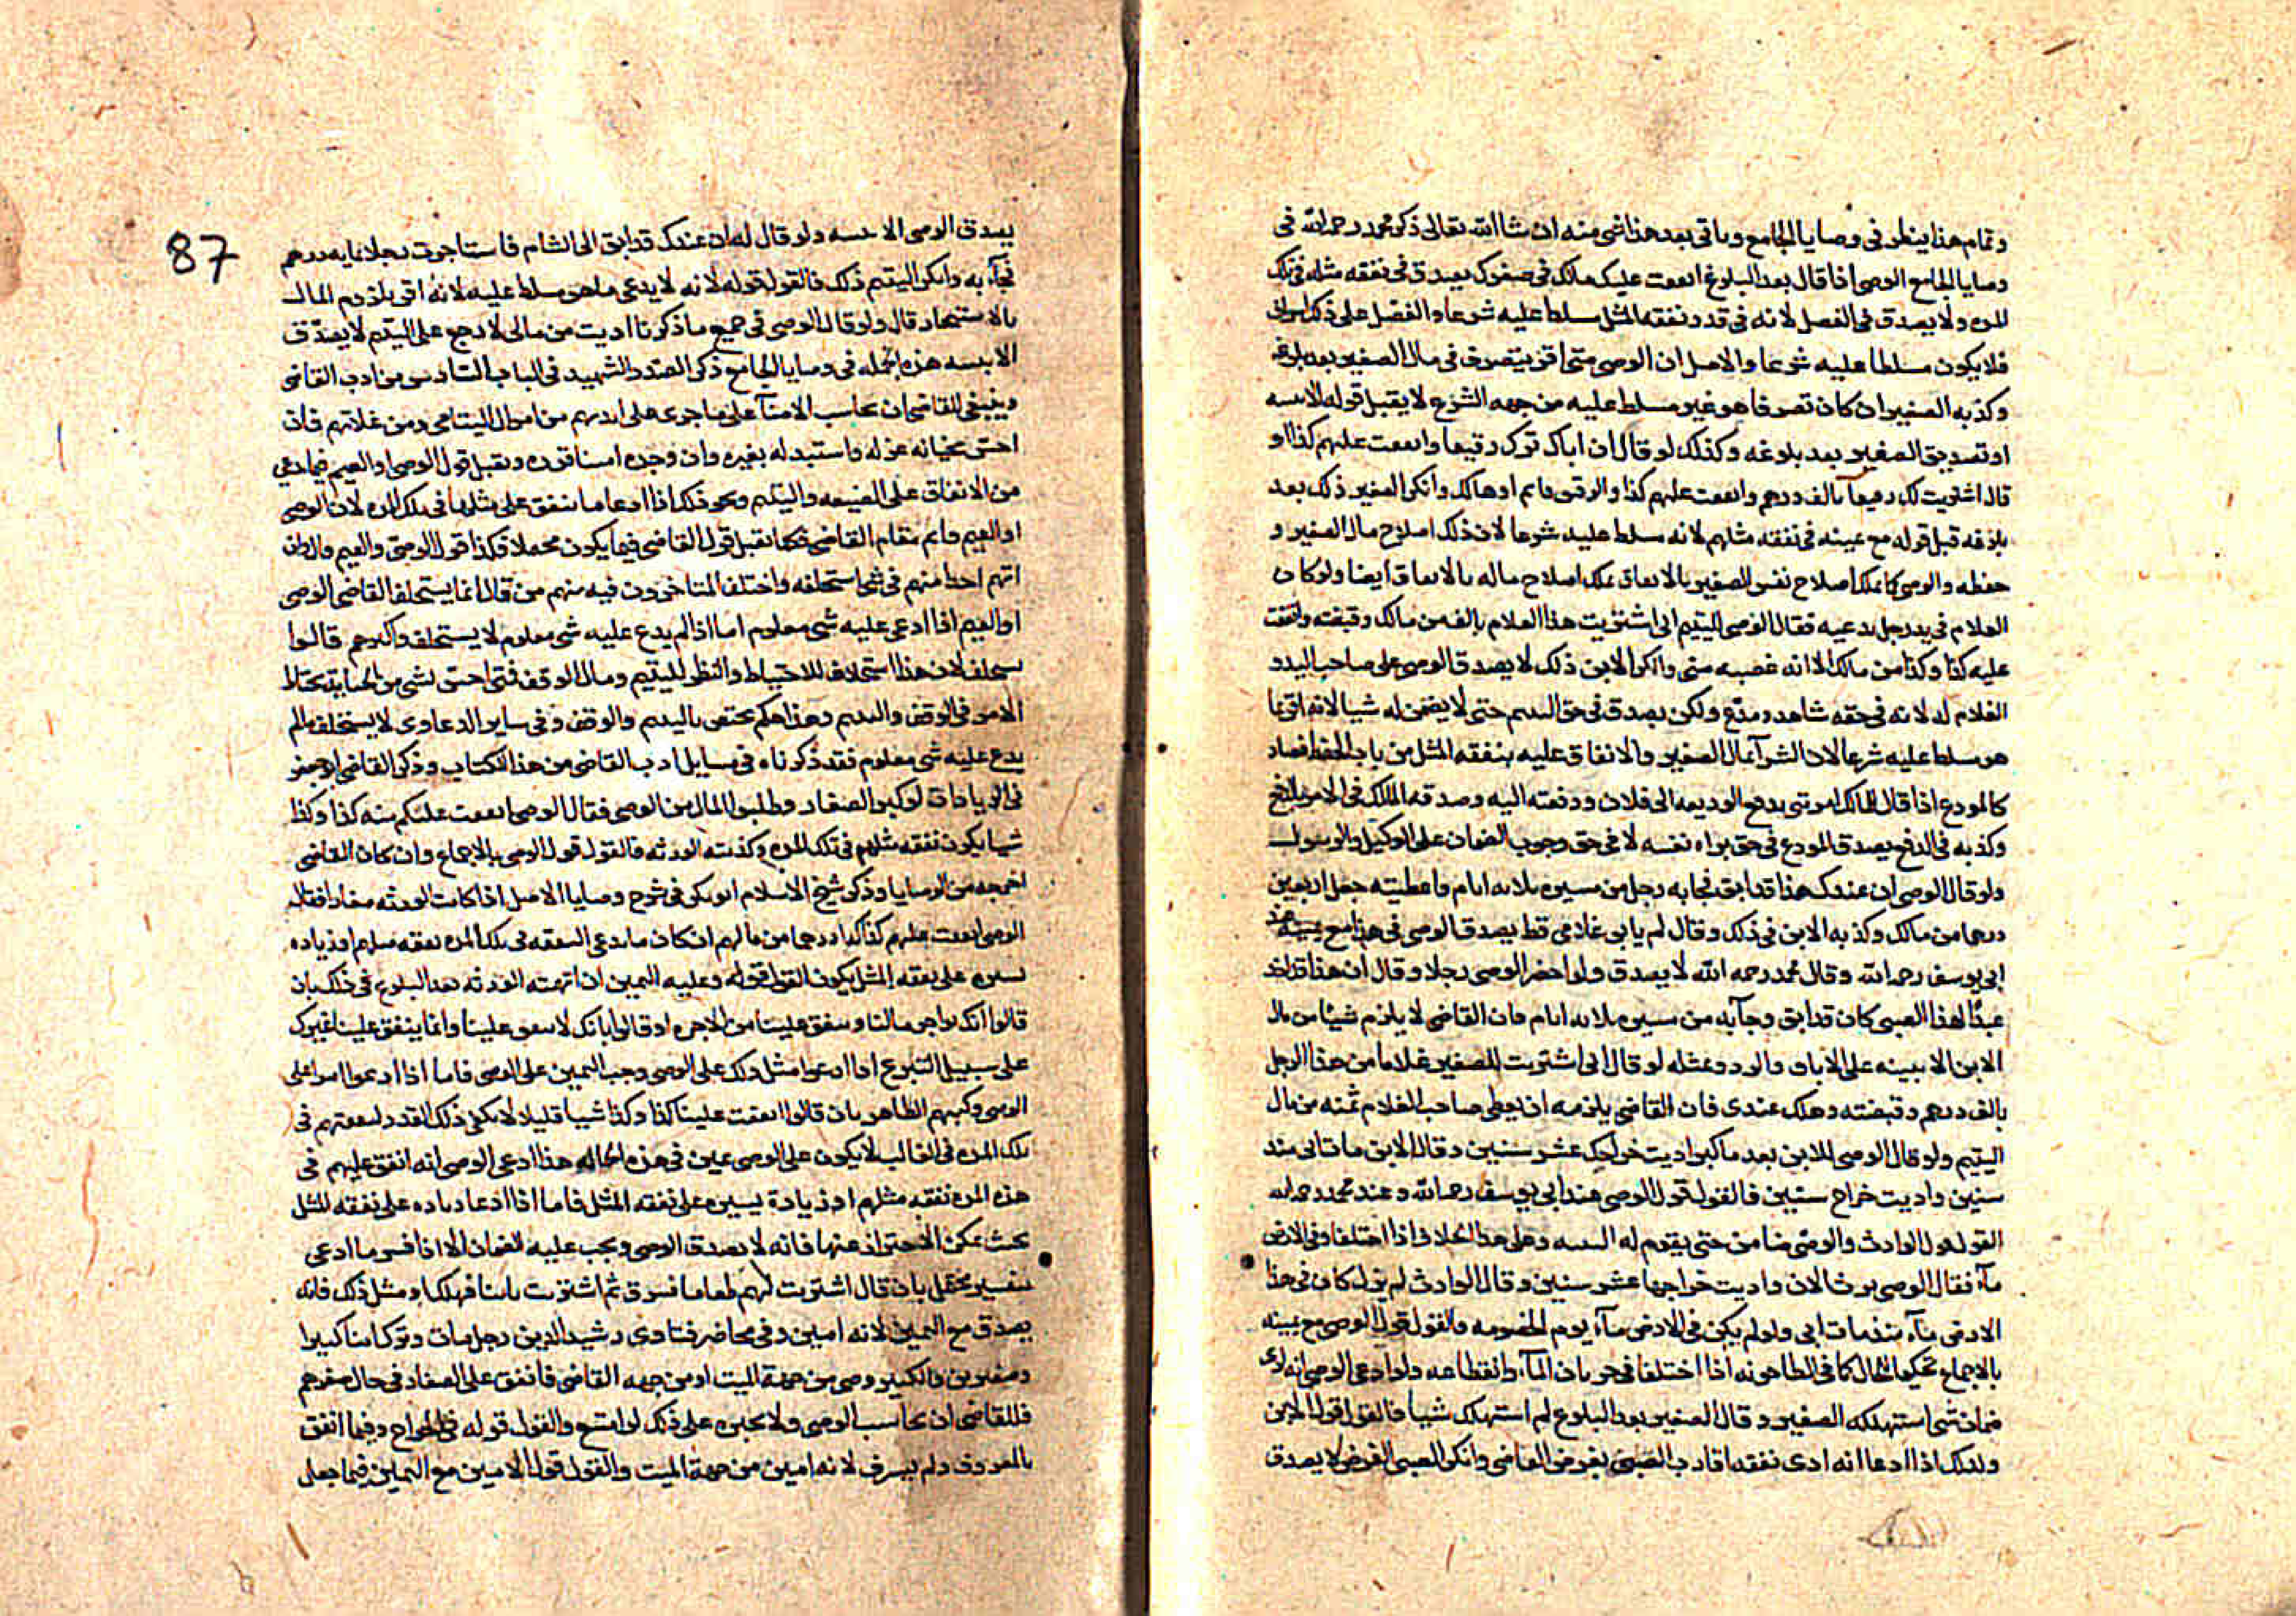 وتمام هذا ينظر فى وصايا الجامع وياتى بعد هذا شى منه ان شا الله تعالى ذكر محمد رحمه الله فى
وصايا الجامع الوصى اذا قال بعد البلوغ انفقت عليك مالك فى صغرك يصدق فى نفقه مثله فى تلك
المده ولا يصدق فى الفضل لانه فى قدر نفقه المثل مسلط عليه شرعا والفضل على ذلك اسراف
فلا يكون مسلطا عليه شرعا والاصل ان الوصى متى اقر بتصرف فى مال الصغير بعد بلوغه
وكذبه الصغير ان كان تصرفا هو غير مسلط عليه من جهه الشرع لا يقبل قوله الا ببينه
او تصديق الصغير بعد بلوغه وكذلك لو قال ان اباك ترك رقيقا وانفقت عليهم كذا او
قال اشتريت لك رقيقا بالف درهم وانفقت عليهم كذا والرقيق قايم او هالك وانكر الصغير ذلك بعد
بلوغه قبل قوله مع يمينه فى نفقه مثلهم لانه مسلط عليه شرعا لان ذلك اصلاح مال الصغير و
حفظه والوصى كما يملك اصلاح نفس الصغير بالانفاق يملك اصلاح ماله بالانفاق ايضا ولو كان
الغلام فى يد رجل يدعيه فقال الوصى لليتيم انى اشتريت هذا الغلام بالف من مالك وقبضته وانفقت
عليه كذا وكذا من مالك الا انه غصبه منى وانكر الابن ذلك لا يصدق الوصى على صاحب اليد و
الغلام له لانه فى حقه شاهد ومدع ولكن يصدق فى حق اليتيم حتى لا يضمن له شيا لانه اقر بما
هو مسلط عليه شرعا لان الشرآ بمال الصغير والانفاق عليه بنفقه المثل من باب الحفظ فصار
كالمودع اذا قال للمالك امرتنى بدفع الوديعه الى فلان ودفعته اليه وصدقه المالك فى الامر بالدفع
وكذبه فى الدفع يصدق المودع فى حق براه نفسه لا فى حق وجوب الضمان على الوكيل والرسول
ولو قال الوصى ان عبدك هذا قد ابق فجا به رجل من مسيره ثلاثه ايام واعطيته جعل اربعين
درهما من مالك وكذبه الابن فى ذلك وقال لم يابق غلامى قط يصدق الوصى فى هذا مع يمينه عند
ابى يوسف رحمه الله وقال محمد رحمه الله لا يصدق ولو احضر الوصى رجلا وقال ان هذا قد اخذ
عبدًا لهذا الصبى كان قد ابق وجآ به من مسيره ثلاثه ايام فان القاضى لا يلزم شيئا من مال
الابن الا ببينه على الاباق والرد وبمثله لو قال انى اشتريت للصغير غلاما من هذا الرجل
بالف درهم وقبضته وهلك عندى فان القاضى يلزمه ان يعطى صاحب الغلام ثمنه من مال
اليتيم ولو قال الوصى للابن بعد ما كبر اديت خراجك عشر سنين وقال الابن مات ابى منذ
سنين واديت خراج سنتين فالقول قول الوصى عند ابى يوسف رحمه الله وعند محمد رحمه الله
القول قول الوارث والوصى ضامن حتى يقيم له البينه وعلى هذا الخلاف اذا اختلفا وفى الارض
مآ فقال الوصى يوما الان واديت خراجها عشر سنين وقال الوارث لم يزل كان فى هذا
الارض مآء منذ مات ابى ولو لم يكن فى الارض مآء يوم الخصومه فالقول قول الوصى مع يمينه
بالاجماع تحكيما للحال كما فى الطاحونه اذا اختلفا فى جريان المآء وانقطاعه ولو ادعى الوصى انه ادى
ضمان شى استهلكه الصغير وقال الصغير بعد البلوغ لم استهلك شيا فالقول قول الابن
وكذلك اذا ادعا انه ادى نفقه اقارب الصبى بفرض القاضى وانكر الصبى الفرض لا يصدق
87
يصدق الوصى الا ببينه ولو قال له ان عبدك قد ابق الى الشام فاستاجرت رجلا بمايه درهم
فجآء به وانكر اليتيم ذلك فالقول قوله لانه لا يدعى ما هو مسلط عليه لانه اقر بلزوم المال
بالاستيجار قال ولو قال الوصى فى جميع ما ذكرنا اديت من مالى لا رجع على اليتيم لا يصدق
الا ببينه هذه الجمله فى وصايا الجامع ذكر الصدر الشهيد فى الباب السادس من ادب القاضى
وينبغى للقاضى ان يحاسب الامنآ على ما جرى على ايديهم من اموال اليتامى ومن غلاتهم فان
احس بخيانه عزله واستبدله بغيره وان وجده امينا قرره ويقبل قول الوصى او القيم فيما يدعى
من الانفاق على الضيعه واليتيم ونحو ذلك اذا ادعا ما ينفق على مثلها فى تلك المده لان الوصى
او القيم قايم مقام القاضى فكما يقبل قول القاضى فيما يكون محتملا فكذا قول الوصى والقيم والوان
اتهم احدا منهم فى شى استحلفه واختلف المتاخرون فيه منهم من قال انما يستحلف القاضى الوصى
او القيم اذا ادعى عليه شى معلوم اما اذا لم يدع عليه شى معلوم لا يستحلفه واكثرهم قالوا
يستحلف لان هذا استحلاف للاحتياط والنظر لليتيم ومال الوقف فمتى احس بشى من الخيانه يحتال
الامر فى الوقف واليتيم وهذا حكم يختص باليتيم والوقف وفى ساير الدعاوى لا يستحلف ما لم
يدع عليه شى معلوم فقد ذكرناه فى مسايل ادب القاضى من هذا الكتاب وذكر القاضى ابو جعفر
فى الزيادات لو كبر الصغار وطلبوا المال من الوصى فقال الوصى انفقت عليكم منه كذا وكذا
شيا يكون نفقه مثلهم فى تلك المده وكذبته الورثه فالقول قول الوصى بالاجماع وان كان القاضى
اخرجه من الوصايا وذكر شيخ الاسلام ابو بكر فى شرح وصايا الاصل اذا كانت الورثه صغارا فقال
الوصى انفقت عليهم كذا كذا درهما من مالهم ان كان ما يدعى النفقه فى تلك المده نفقه مثلهم او زياده
يسيره على نفقه المثل يكون القول قوله وعليه اليمين ان اتهمته الورثه بعد البلوغ فى ذلك بان
قالوا انك تواجر مالنا وتنفق علينا من الاجره او قالوا بانك لا تنفق علينا وانما ينفق علينا غيرك
على سبيل التبرع اذا ادعوا مثل ذلك على الوصى وجب اليمين على الوصى فاما اذا ادعوا امرا على
الوصى وكذبهم الظاهر بان قالوا انفقت علينا كذا وكذا شيا قليلا لا يكفى ذلك القدر لنفقتهم فى
تلك المده فى الغالب لا يكون على الوصى يمين فى هذه الحاله هذا ادعى الوصى انه انفق عليهم فى
هذه المده نفقه مثلهم او زيادة يسيره على نفقه المثل فاما اذا ادعا زياده على نفقه المثل
بحيث يمكن الاحتراز عنها فانه لا يصدق الوصى ويجب عليه الضمان الا اذا فسر ما ادعى
بتفسير محتمل بان قال اشتريت لهم طعاما فسرق ثم اشتريت ثانيا فهلك او مثل ذلك فانه
يصدق مع اليمين لانه امين وفى محاضر فتاوى رشيد الدين رجل مات وترك ابنا كبيرا
وصغيرين والكبير وصى من جهة الميت او من جهه القاضى فانفق على الصغار فى حال صغرهم
فللقاضى ان يحاسب الوصى ولا يجبره على ذلك لو امتنع والقول قوله فى الخراج وفيما انفق
بالمعروف ولم يسرف لانه امين من جهة الميت والقول قول الامين مع اليمين فيما جعل